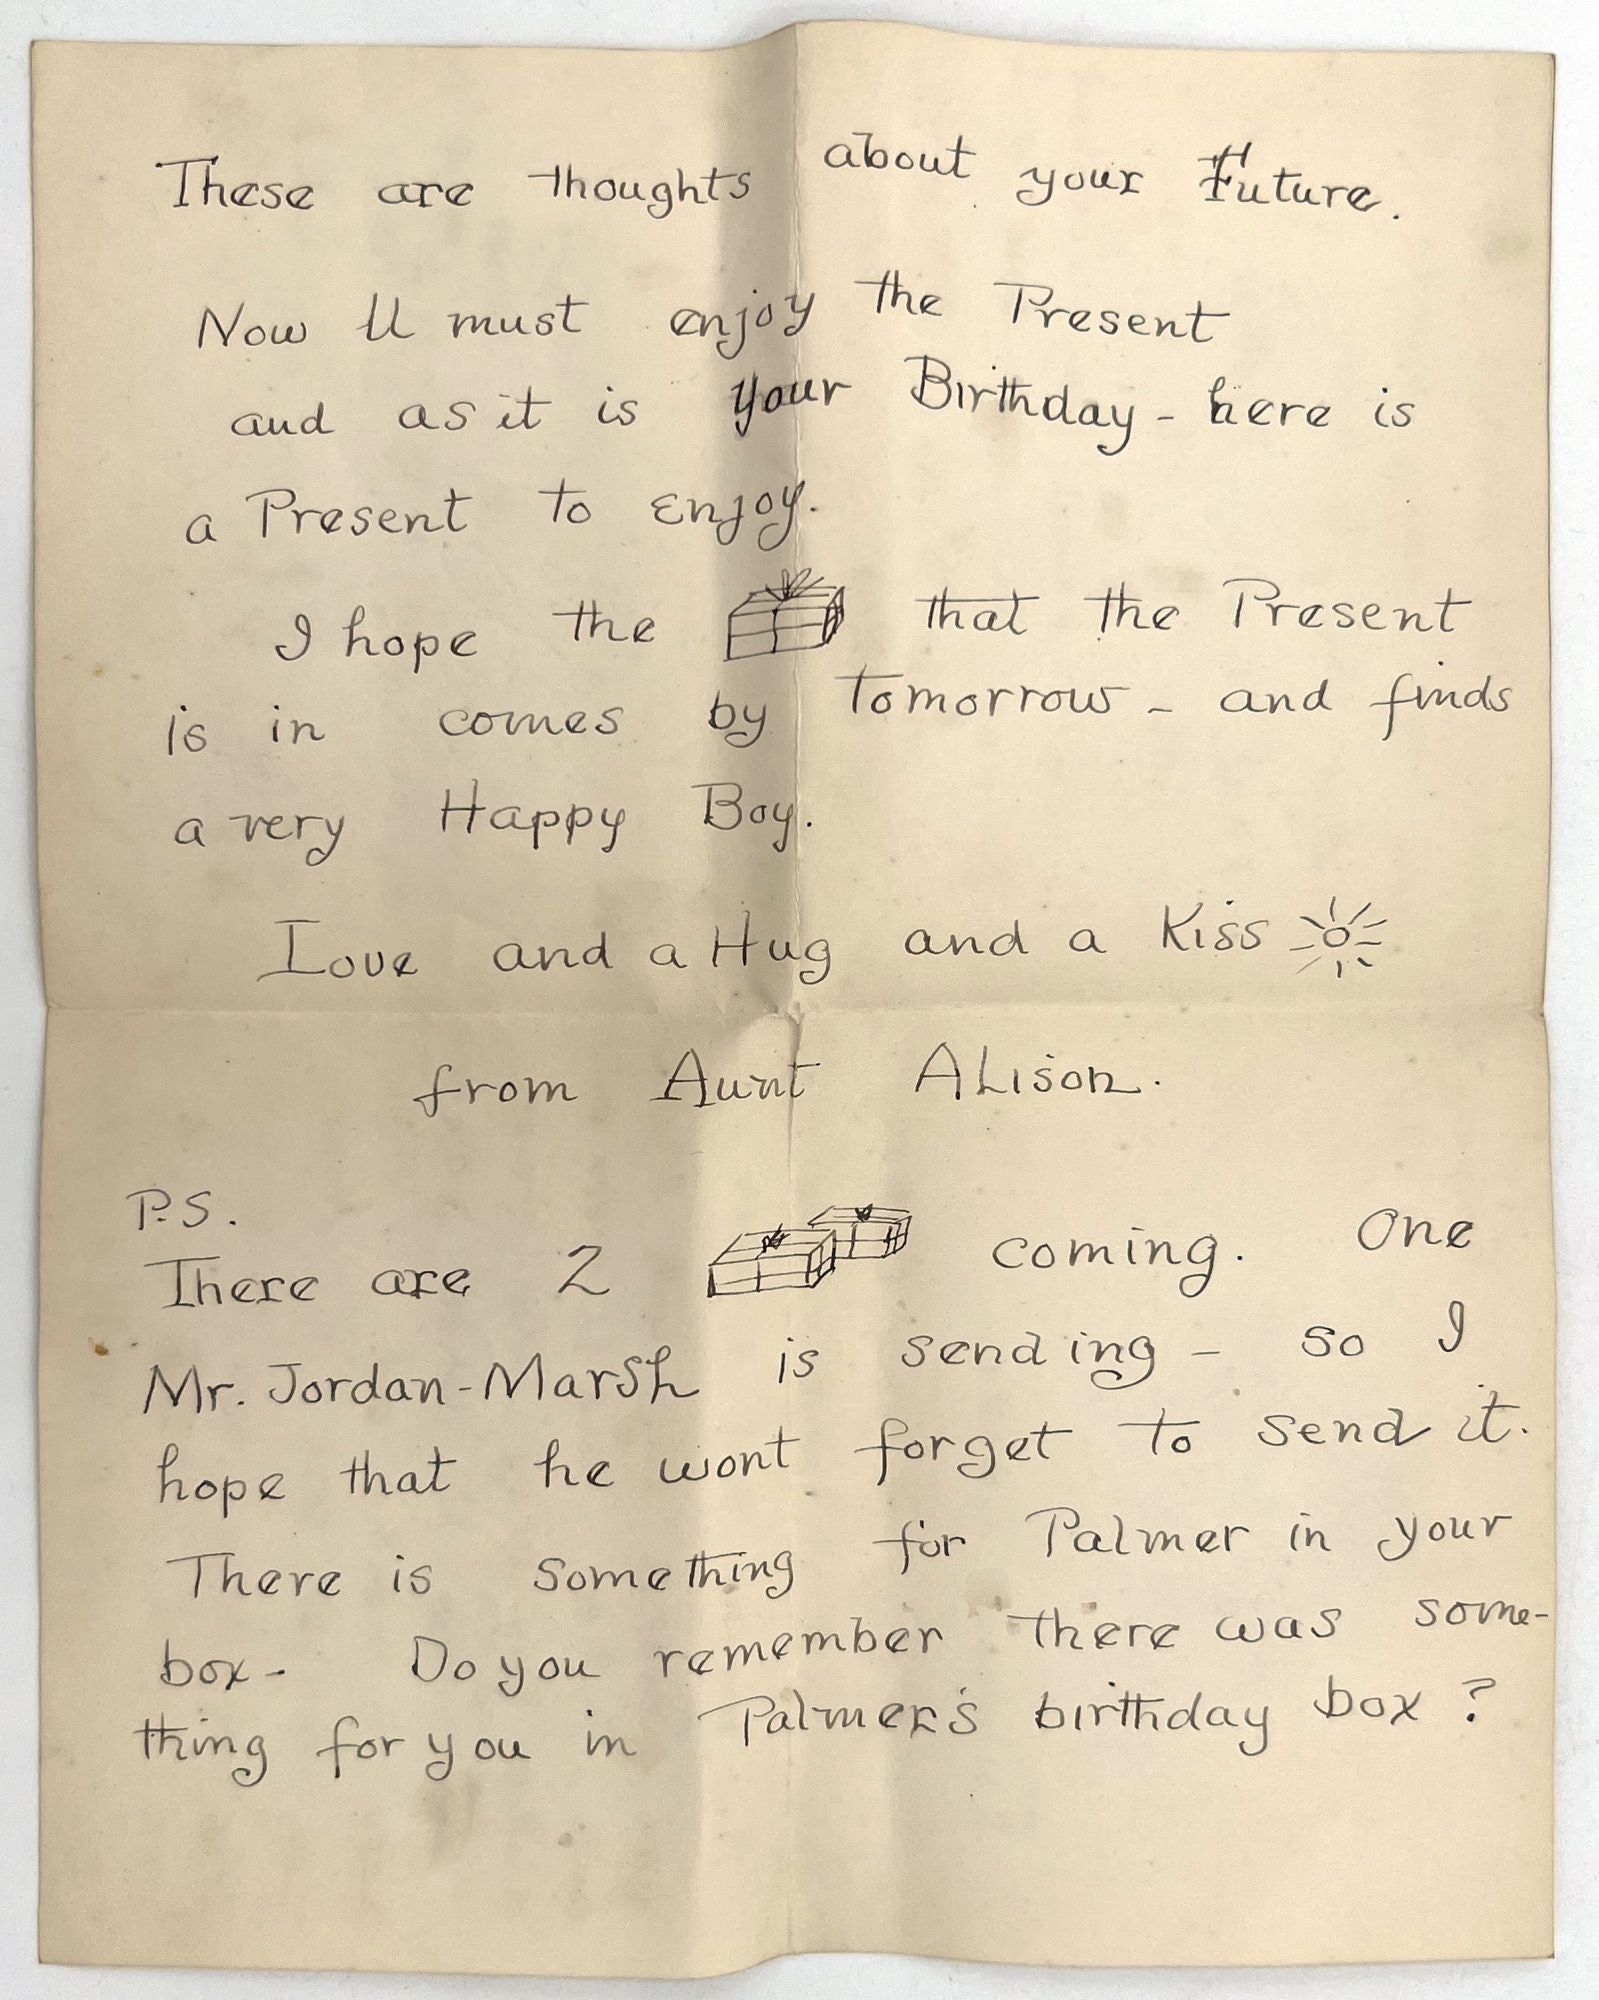 These are thoughts about your Future.
Now U must enjoy the Present
and as it is your Birthday - here is
a Present to Enjoy.
I hope the that the Present
is in comes by tomorrow - and finds
a very Happy Boy.
Love and a Hug and a Kiss
from Aunt ALison.
P.S.
There are 2 coming. One
Mr. Jordan-Marsh is sending - so I
hope that he wont forget to send it.
There is something for Palmer in your
box - Do you remember there was some-
thing for you in Palmer's birthday box?